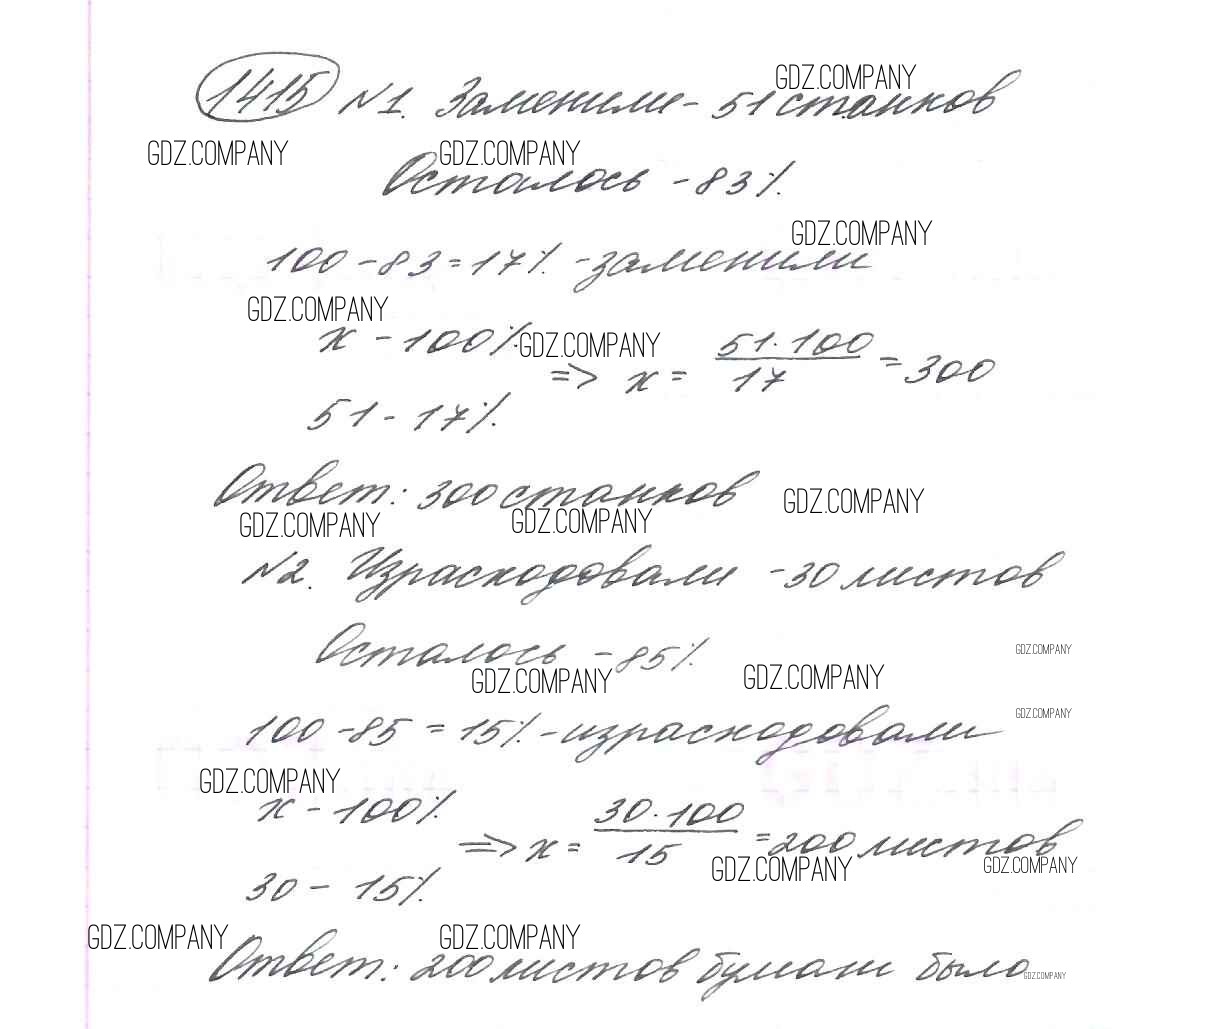 1415 №1. Заменили - 51 станков
GDZ.COMPANY
GDZ.COMPANY GDZ.COMPANY
Осталось - 83%.
GDZ.COMPANY
100 - 83 = 17% - заменили
GDZ.COMPANY
x - 100%. => x = 51·100 / 17 = 300
GDZ.COMPANY
51 - 17%.
Ответ: 300 станков
GDZ.COMPANY
GDZ.COMPANY GDZ.COMPANY
№2. Израсходовали - 30 листов
Осталось - 85%.
GDZ.COMPANY
GDZ.COMPANY GDZ.COMPANY
GDZ.COMPANY
100 - 85 = 15% - израсходовали
GDZ.COMPANY
x - 100% => x = 30·100 / 15 = 200 листов
GDZ.COMPANY GDZ.COMPANY
30 - 15%.
GDZ.COMPANY GDZ.COMPANY
Ответ: 200 листов бумаги было
GDZ.COMPANY